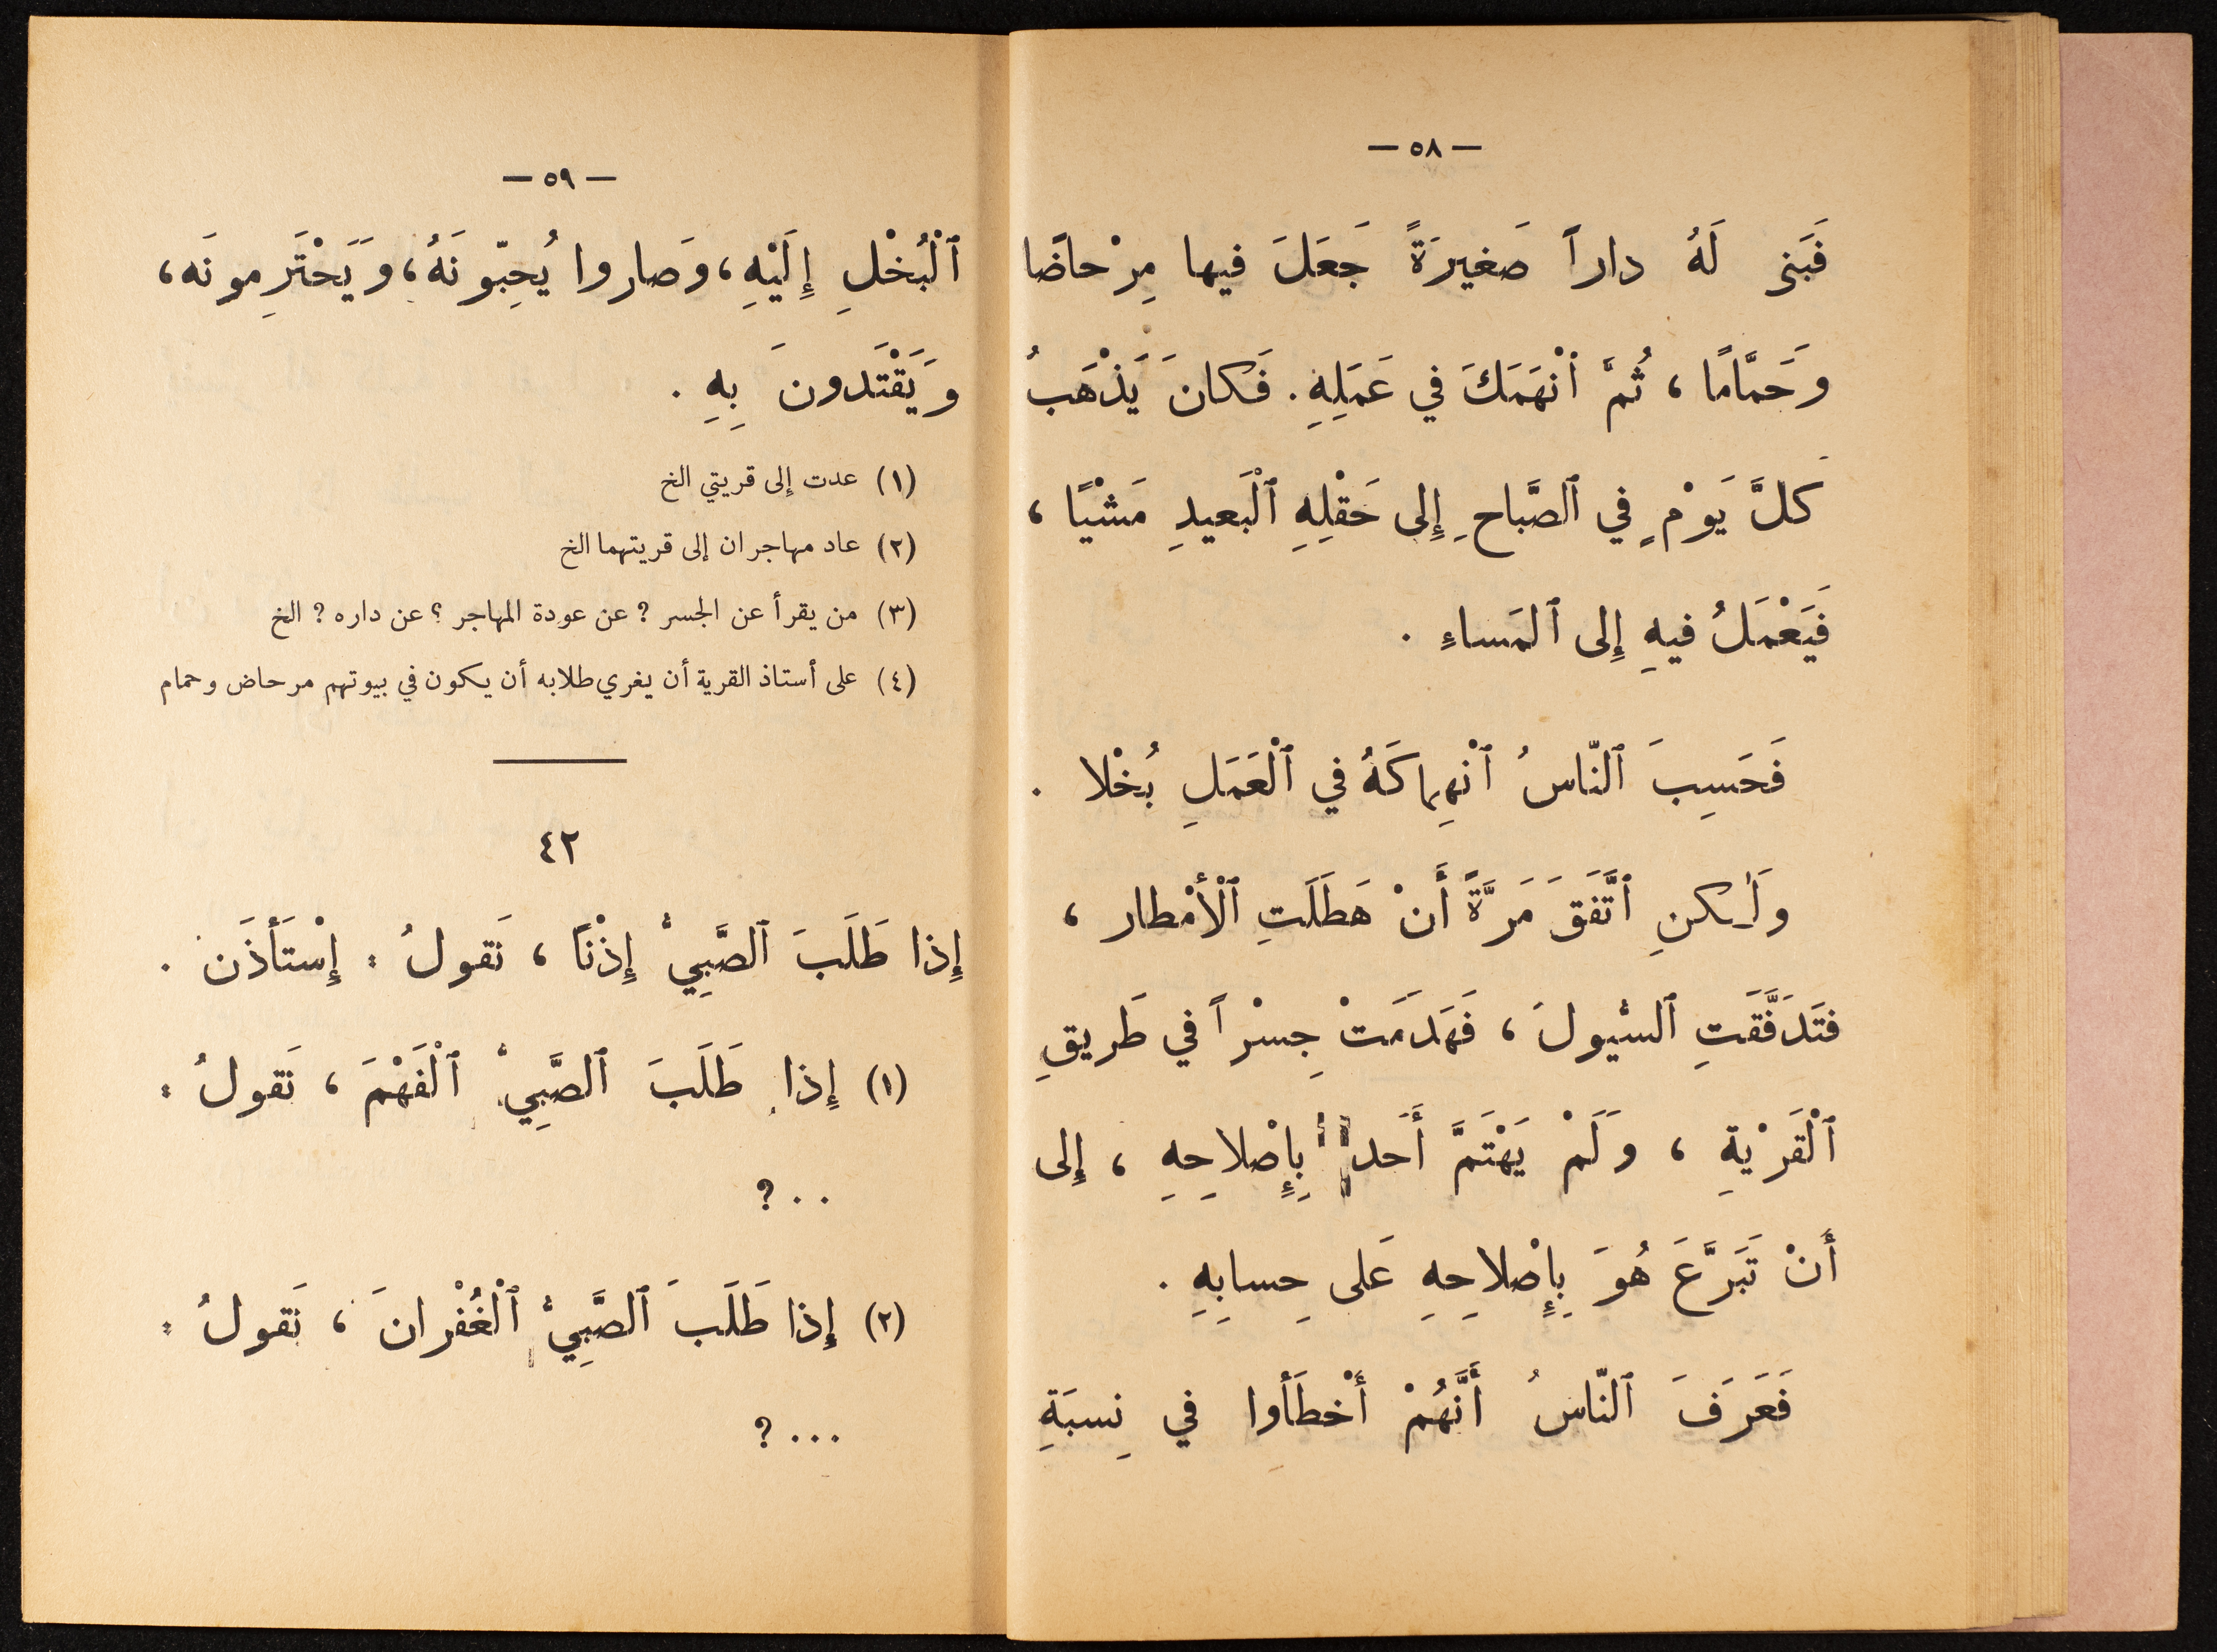 — ٥٨ —
فَبَنى لَهُ داراً صَغيرَةً جَعَلَ فيها مِرْحاضًا
وَحَمَّامًا ، ثُمَّ ٱنْهَمَكَ في عَمَلِهِ. فَكانَ يَذْهَبُ
كلَّ يَوْمٍ في ٱلصَّباحِ إِلى حَقْلِهِ ٱلْبَعيدِ مَشْيًا ،
فَيَعْمَلُ فيهِ إِلى ٱلمَساءِ .
فَحَسِبَ ٱلنّاسُ ٱنْهِماكَهُ في ٱلْعَمَلِ بُخْلا .
وَلٰكنِ ٱتَّفَقَ مَرَّةً أَنْ هَطَلَتِ ٱلْأَمْطار ،
فتَدَفَّقَتِ ٱلسُّيولُ ، فَهَدَمَتْ جِسْراً في طَريقِ
ٱلْقَرْيَةِ ، وَلَمْ يَهْتَمَّ أَحَدٌ بِإِصْلاحِهِ ، إِلى
أَنْ تَبَرَّعَ هُوَ بِإِصْلاحِهِ عَلى حِسابِهِ .
فَعَرَفَ ٱلنّاسُ أَنَّهُمْ أَخْطَأُوا في نِسبَةِ
— ٥٩ —
ٱلْبُخْلِ إِلَيْهِ، وَصاروا يُحِبّونَهُ، وَيَحْتَرِمونَه،
وَيَقْتَدونَ بِهِ .
(١) عدت إلى قريتي الخ
(٢) عاد مهاجران إلى قريتهما الخ
(٣) من يقرأ عن الجسر ؟ عن عودة المهاجر ؟ عن داره ؟ الخ
(٤) على أستاذ القرية أن يغري طلابه أن يكون في بيوتهم مرحاض وحمام
٤٢
إِذا طَلَبَ ٱلصَّبِيُّ إِذْنًا ، نَقولُ : إِسْتَأْذَن .
(١) إِذا طَلَبَ ٱلصَّبِيُّ ٱلْفَهْمَ ، نَقولُ :
. . ؟
(٢) إِذا طَلَبَ ٱلصَّبِيُّ ٱلْغُفْرانَ ، نَقولُ :
. . . ؟